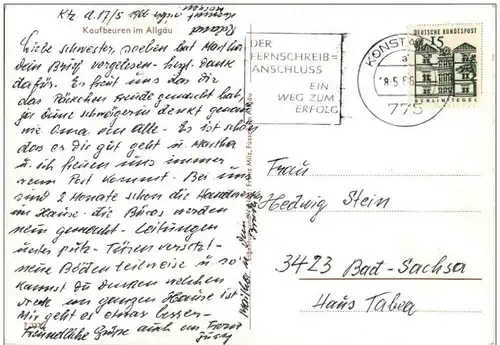 Ktz. d. 17/5 1966
Kaufbeuren im Allgäu
Liebe Schwester, soeben hat Martha
dein Brief vorgelesen - hrzl. Dank
dafür. Es freut uns das dir
das Päckchen Freude gemacht hat
denkt
eine Oma ein alle - Es ist schön
das es dir gut geht u. Martha
u. ich freuen uns immer
wenn Post kommt. Bei uns
sind 2 Monate schon die Handwerker
im Hause - die Büros werden
neu gemacht - Leitungen
unter putz - Türen versetzt -
neue Böden teilweise u. so
kannst du denken welchen
Dreck im ganzen Hause ist
Mir geht es etwas besser -
Freundliche Grüße auch an Franz
DER
FERNSCHREIB=
ANSCHLUSS
EIN
WEG ZUM
ERFOLG
KONSTANZ
775
DEUTSCHE BUNDESPOST
15
BERLIN-TEGEL
Franz Milz, Füssen
Frau
Hedwig Stein
3423 Bad-Sachsa
Haus Tabea